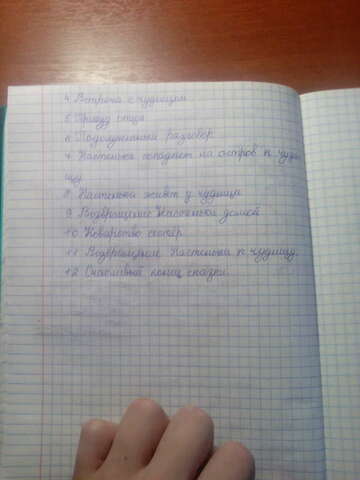 4. Встреча с чудищем
5. Приезд отца
6. Подслушанный разговор
7. Настенька попадает на остров к чуди-
щу
8. Настенька живёт у чудища
9. Возвращение Настеньки домой
10. Коварство сестёр
11. Возвращение Настеньки к чудищу.
12. Счастливый конец сказки.